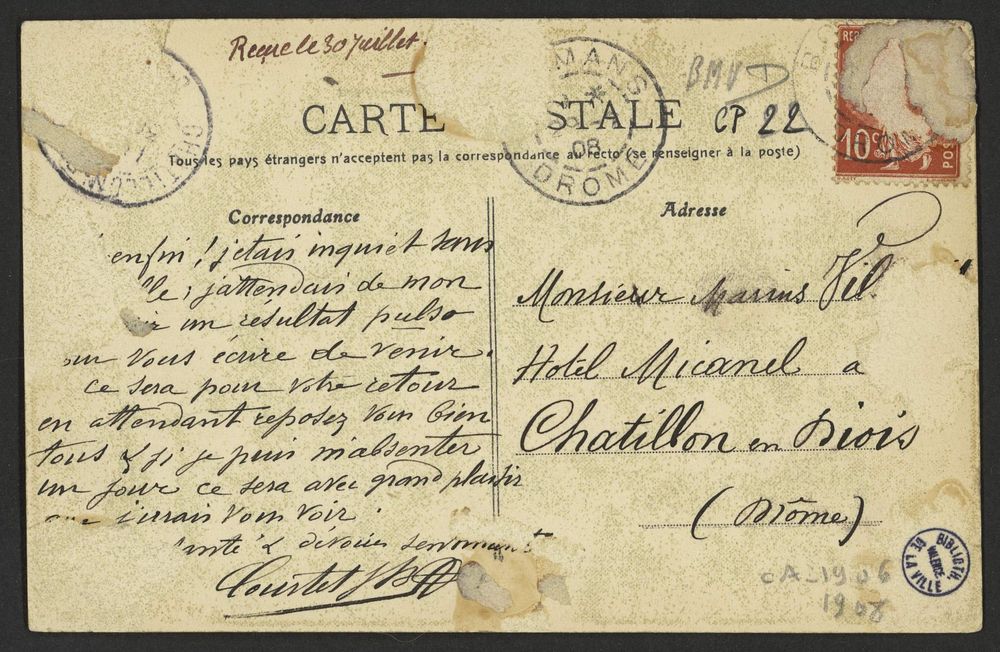 Reçue le 30 Juillet.
BMV D
CARTE STALE
CP 22
MANS
08
DROME
CHATILLON
10c
POS
Tous les pays étrangers n'acceptent pas la correspondance au recto (se renseigner à la poste)
Correspondance
enfin ! j'etais inquiet sans
j'attendais de mon
un resultat pulso
vous écrire de venir.
ce sera pour votre retour
en attendant reposez vous bien
tous & si je puis m'absenter
un jour ce sera avec grand plaisir
que j'irais vous voir.
Courtet
Adresse
Monsieur Marius Vel
Hotel Micanel a
Chatillon en Diois
(Drôme)
CA-1906
1908
BIBLIOTH.
DE LA VILLE
VALENCE